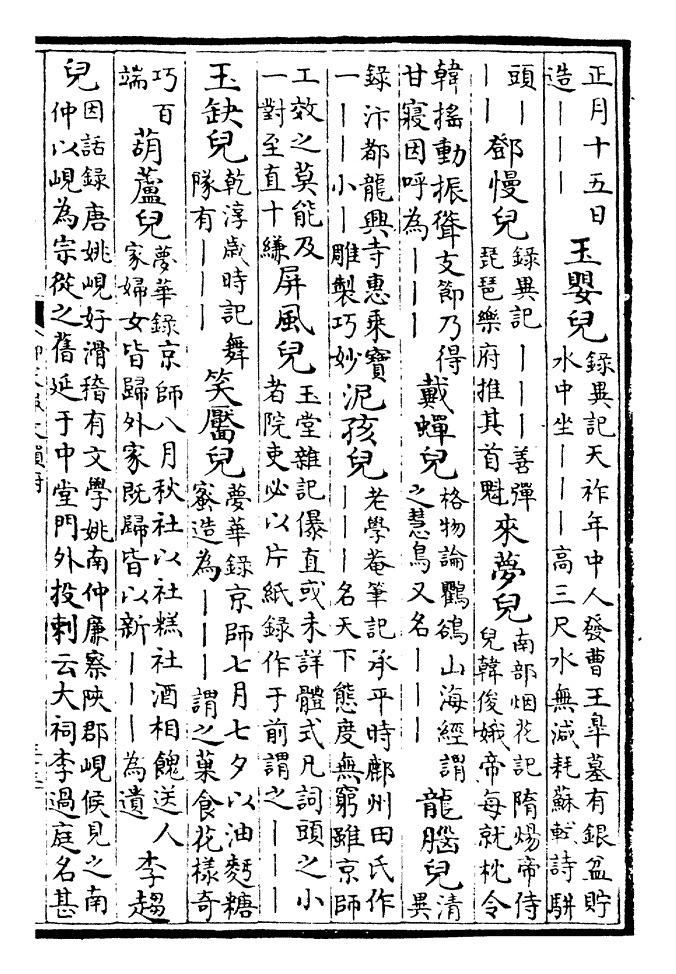 正月十五日
造丨丨丨
玉嬰兒
錄異記天祚年中人發曹王臯墓有銀盆貯
水中坐丨丨丨高三尺水無減耗蘇軾詩駢
頭丨
丨丨
鄧慢兒
錄異記丨丨丨善彈
琵琶樂府推其首魁
來夢兒
南部烟花記隋煬帝侍
兒韓俊娥帝每就枕令
韓搖動振聳支節乃得
甘寢因呼為丨丨丨
戴蟬兒
格物論鸜鵒山海經謂
之慧鳥又名丨丨丨
龍腦兒
清
異
錄汴都龍興寺惠乘寶
一丨丨丨小丨雕製巧妙
泥孩兒
老學菴筆記承平時鄜州田氏作
丨丨丨名天下態度無窮雖京師
工效之莫能及
一對至直十縑
屏風兒
玉堂雜記儤直或未詳體式凡詞頭之小
者院吏必以片紙錄作于前謂之丨丨丨
玉缺兒
乾淳歲時記舞
隊有丨丨丨
笑靨兒
夢華錄京師七月七夕以油麪糖
蜜造為丨丨丨謂之菓食花樣奇
巧百
端
葫蘆兒
夢華錄京師八月秋社以社糕社酒相餽送人
家婦女皆歸外家既歸皆以新丨丨丨為遺
李趨
兒
因話錄唐姚峴好滑稽有文學姚南仲廉察陝郡峴候見之南
仲以峴為宗從之舊延于中堂門外投刺云大祠李過庭名甚